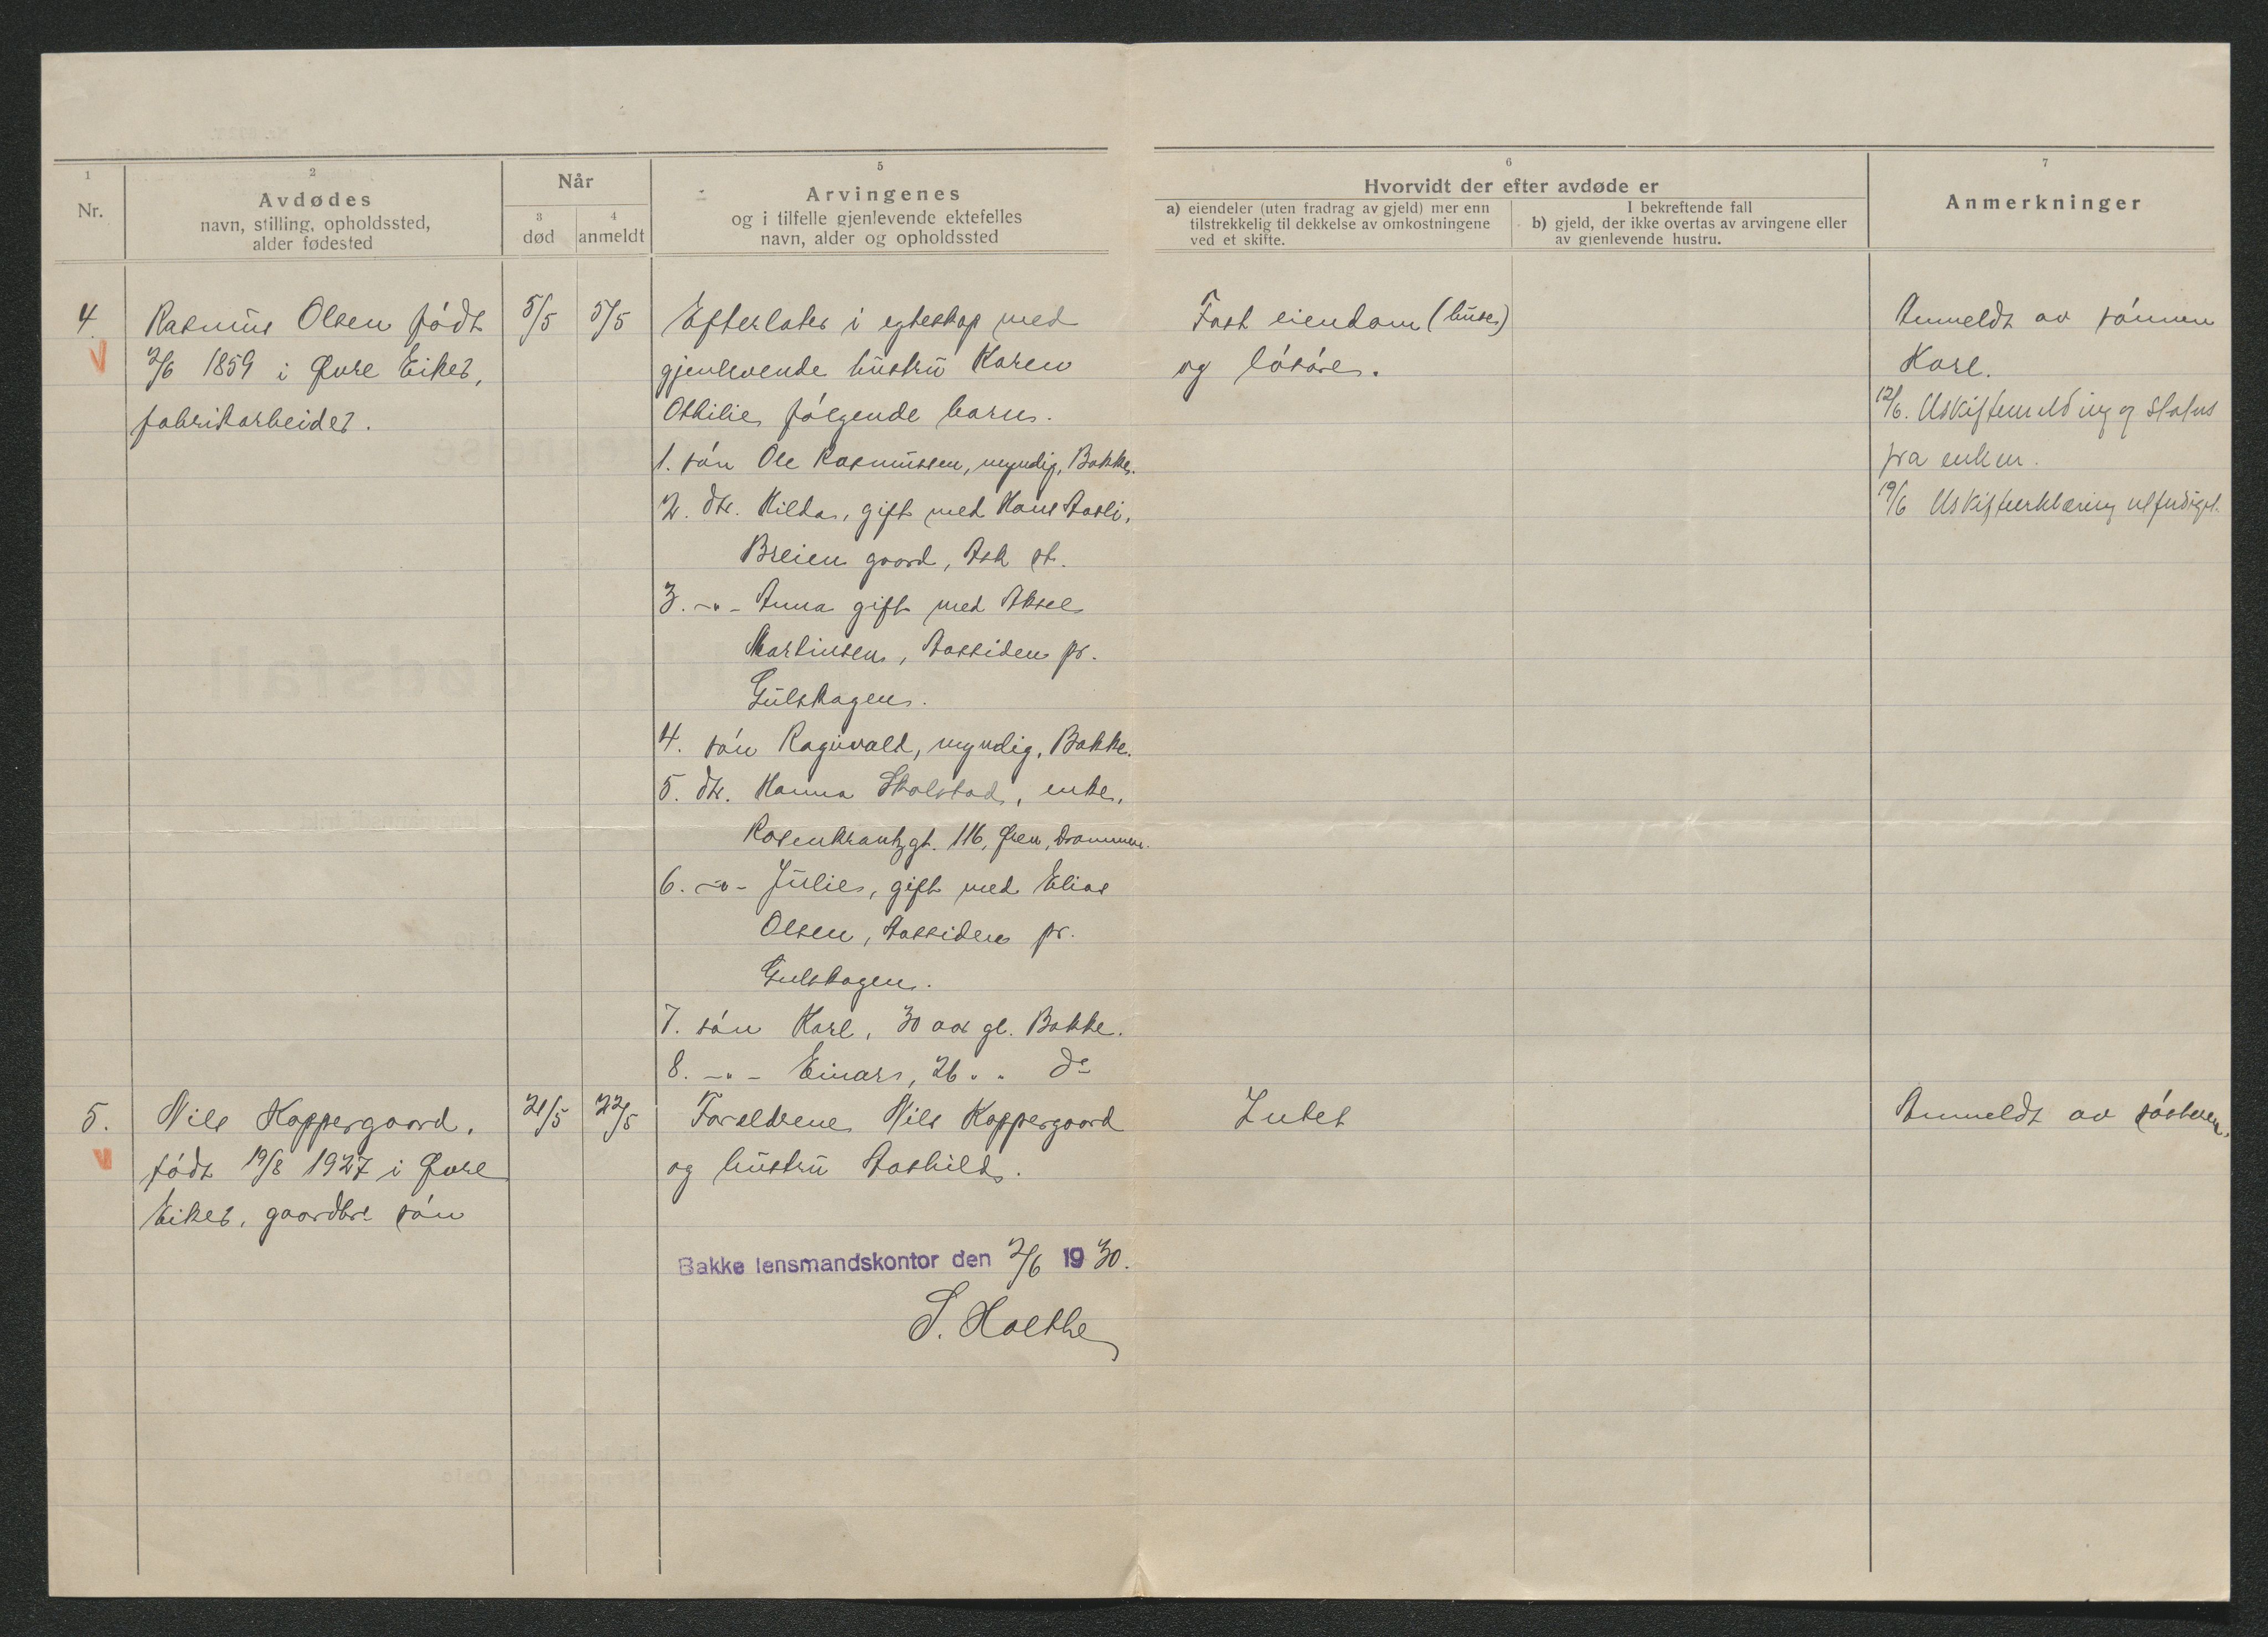 1
Nr.
2
Avdødes
navn, stilling, opholdssted,
alder fødested
Når
3
død
4
anmeldt
5
Arvingenes
og i tilfelle gjenlevende ektefelles
navn, alder og opholdssted
6
Hvorvidt der efter avdøde er
a) eiendeler (uten fradrag av gjeld) mer enn
tilstrekkelig til dekkelse av omkostningene
ved et skifte.
I bekreftende fall
b) gjeld, der ikke overtas av arvingene eller
av gjenlevende hustru.
7
Anmerkninger
4
Rasmus Olsen född
2/6 1859 i Øvre Eiker,
fabrikarbeider.
5/5
5/5
Efterlater i egteskap med
gjenlevende hustru Karen
Othilie følgende barn.
1. søn Ole Rasmussen, myndig, Bakke.
2. dtr. Hilda, gift med Hans Aasli,
Breien gaard, Ask st.
3. -"- Anna gift med Aksel
Martinsen, Aassiden pr.
Gulskogen.
4. søn Ragnvald, myndig, Bakke.
5. dtr. Hanna Skalstad, enke,
Rosenkrantzgt. 116, Øren, Drammen.
6. -"- Julie, gift med Elias
Olsen, Aassiden pr.
Gulskogen.
7. søn Karl, 30 aar gl. Bakke.
8. -"- Einar, 26 " " do
Fast eiendom (huse)
og løsøre.
Anmeldt av sønnen
Karl.
12/6. Uskiftemelding og status
fra enken.
19/6 Uskifteerklæring utferdiget.
5.
Nils Koppergaard,
født 19/8 1927 i Øvre
Eiker, gaardbr. søn
21/5
22/5
Forældrene Nils Koppergaard
og hustru Aashild.
Intet
Anmeldt av søsteren.
Bakke lensmandskontor den 2/6 1930.
S. Holthe